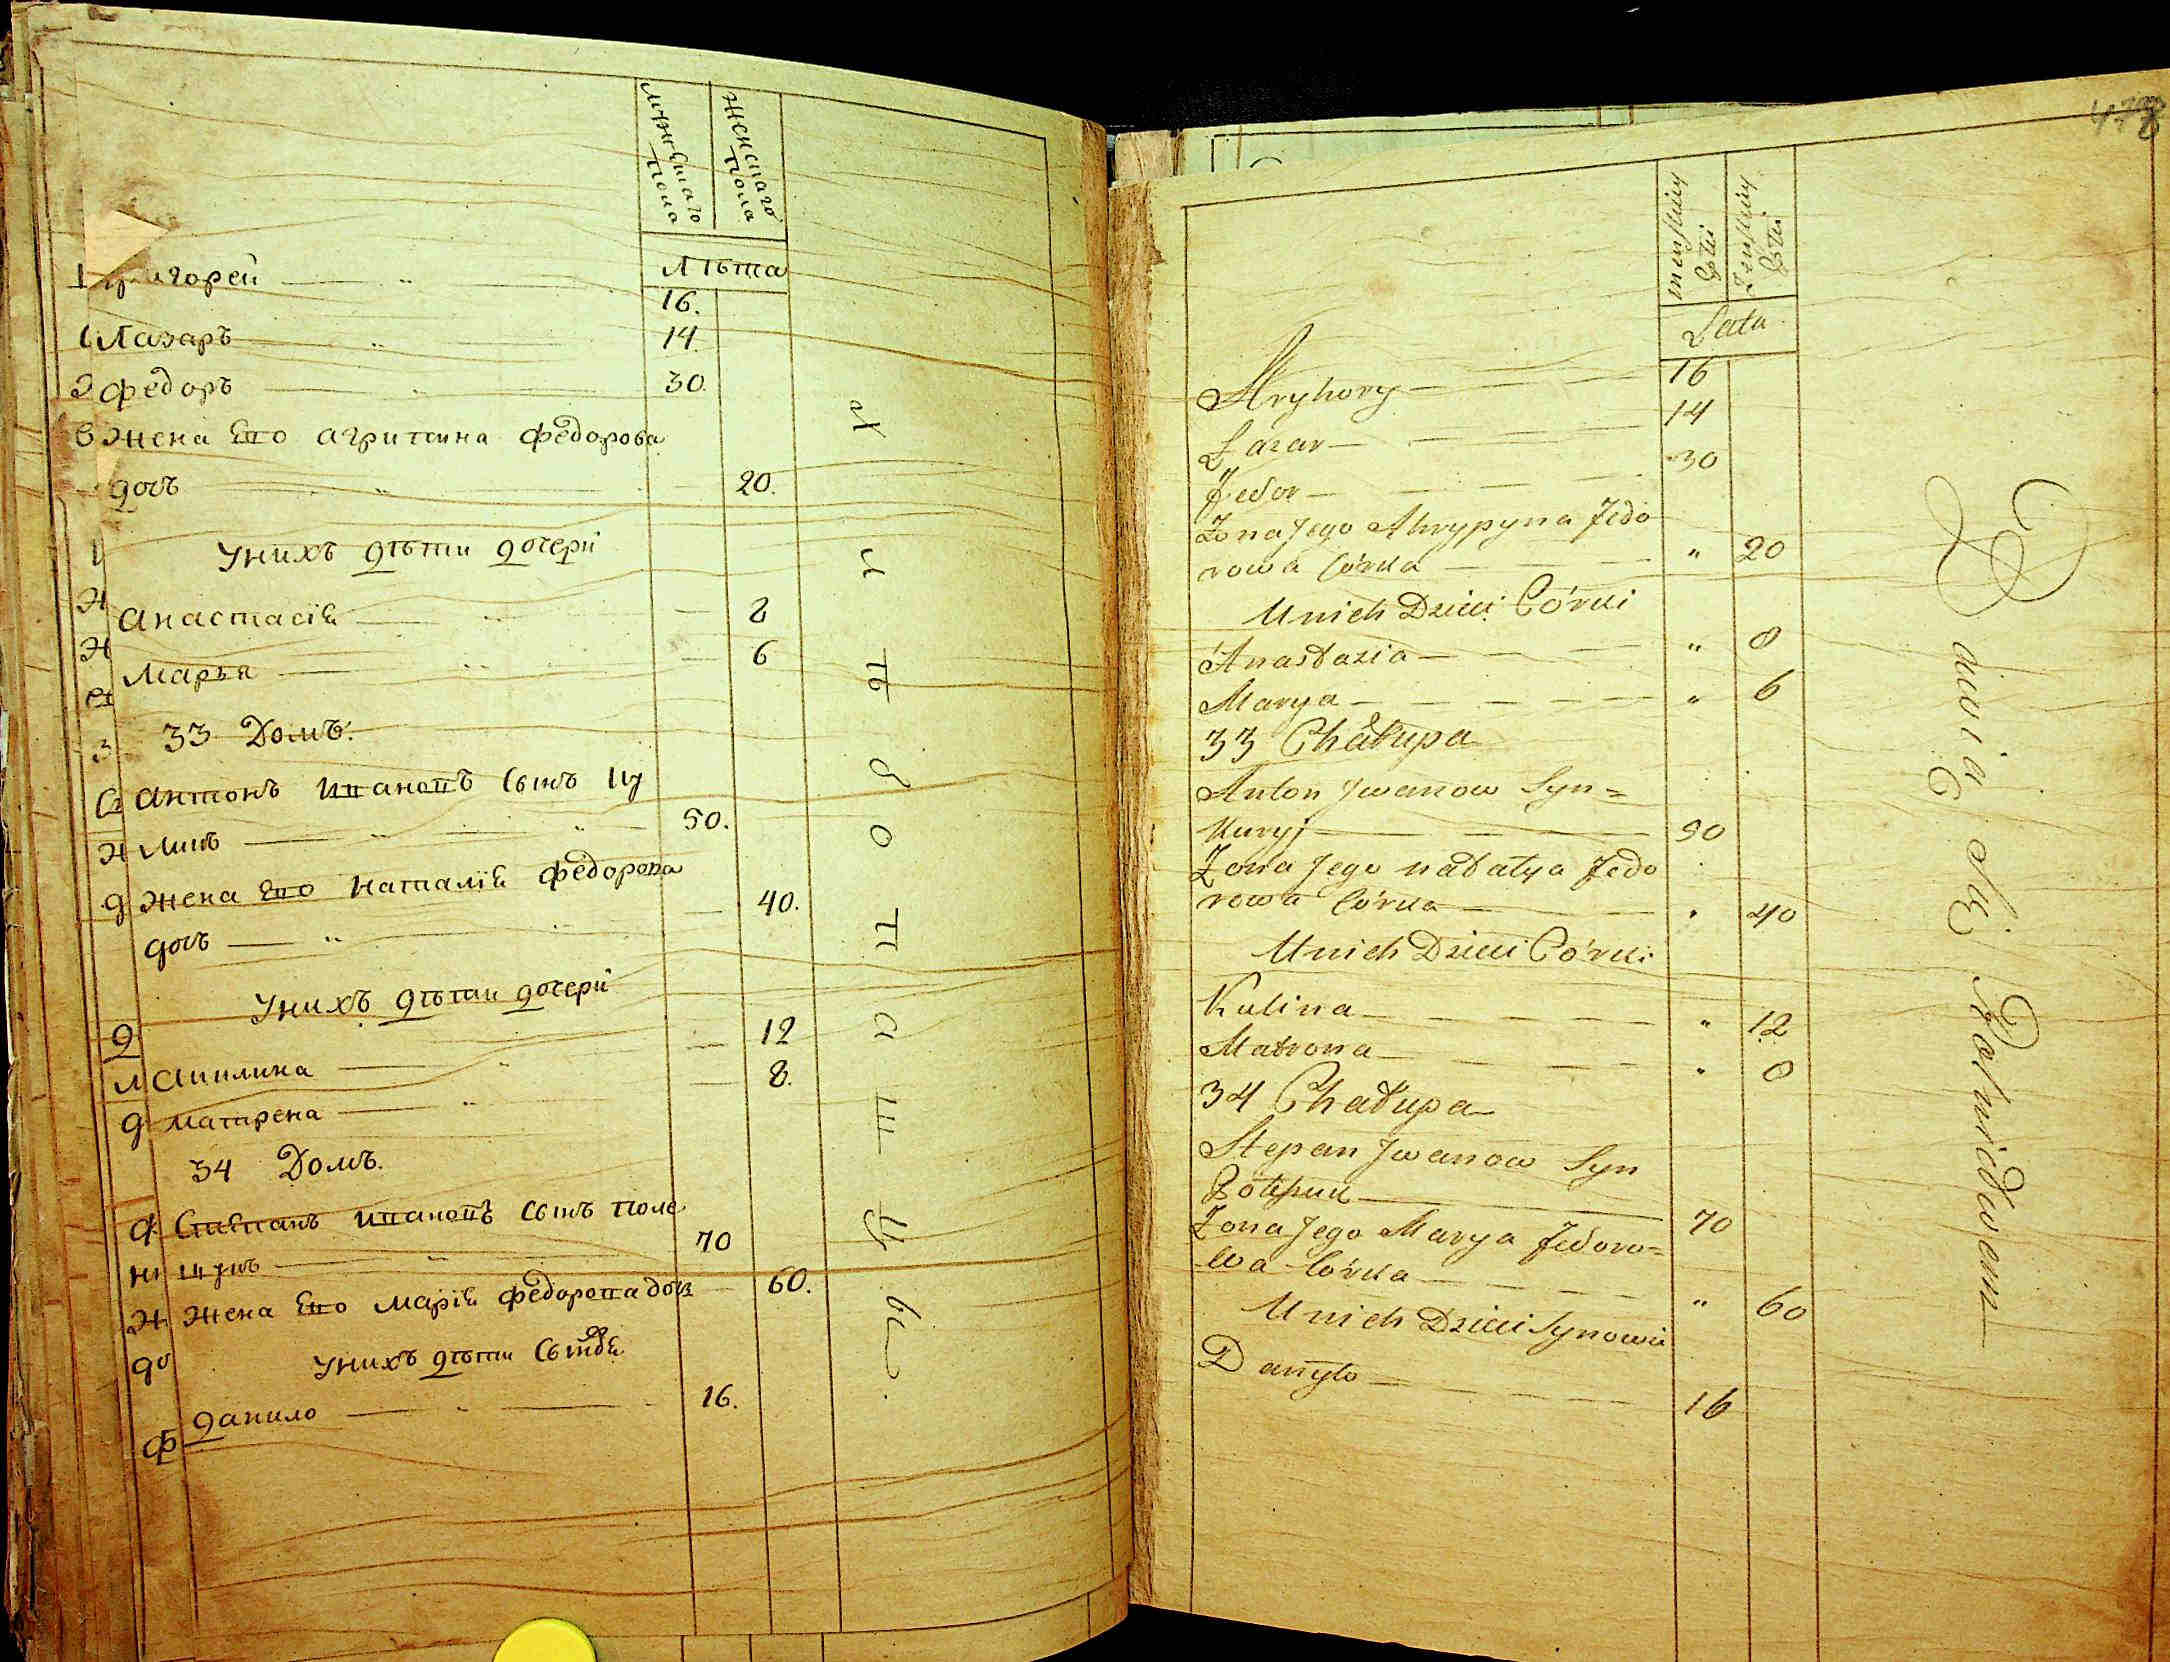 мужескаго пола
женскаго пола
лѣта
Григорей 16.
Лазаръ 14
федоръ 30.
жена Его агрипина федорова
дочъ 20.
Унихъ дѣти дочери
анастасіѣ 8
Марья 6
33 Домъ.
антонъ ивановъ сынъ
50.
жена Его наталіѣ федорова
дочъ 40.
Унихъ дѣти дочери
акилина 12
матрена 8.
34 Домъ.
Степанъ ивановъ сынъ поле
щукъ 70
жена Его маріѣ федорова дочъ 60.
Унихъ дѣти
данило 16.
хлѣбопашцы.
478
menskiey Płci
Żenskiey Płci
Lata
Hryhory 16
Łazar 14
Fedor 30
Żona Jego Ahrypyna Fedo
rowa Córka " 20
U nich Dzieci Córki
Anastazia " 8
Marya " 6
33 Chałupa
Anton Jwanow Syn=
50
Żona Jego natalya Fedo
rowa Córka " 40
U nich Dzieci Córki
Kulina " 12
Matrona " 8
34 Chałupa
Stepan Jwanow Syn
70
Żona Jego Marya Fedoro=
wa Córka " 60
U nich Dzieci Synowie
Danyło 16
Bawią Się Rolnictwem